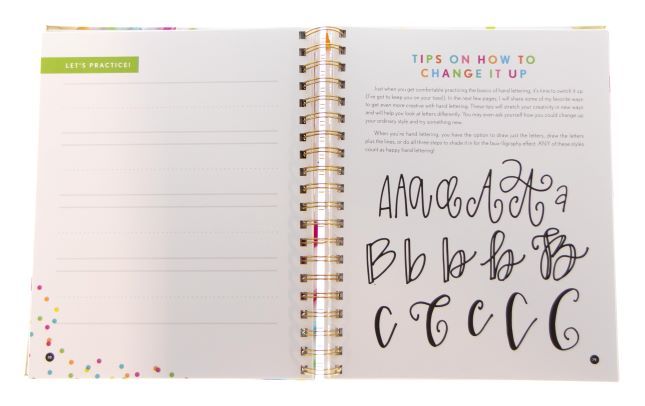 LET'S PRACTICE!
TIPS ON HOW TO
CHANGE IT UP
Just when you get comfortable practicing the basics of hand lettering, it's time to switch it up
(I've got to keep you on your toes!). In the next few pages, I will share some of my favorite ways
to get even more creative with hand lettering. These tips will stretch your creativity in new ways
and will help you look at letters differently. You may even ask yourself how you could change up
your ordinary style and try something new.
When you're hand lettering, you have the option to draw just the letters, draw the letters
plus the lines, or do all three steps to shade it in for the faux-lligraphy effect. ANY of these styles
count as happy hand lettering!
A A a a A A a
B b b b B
C C c C C